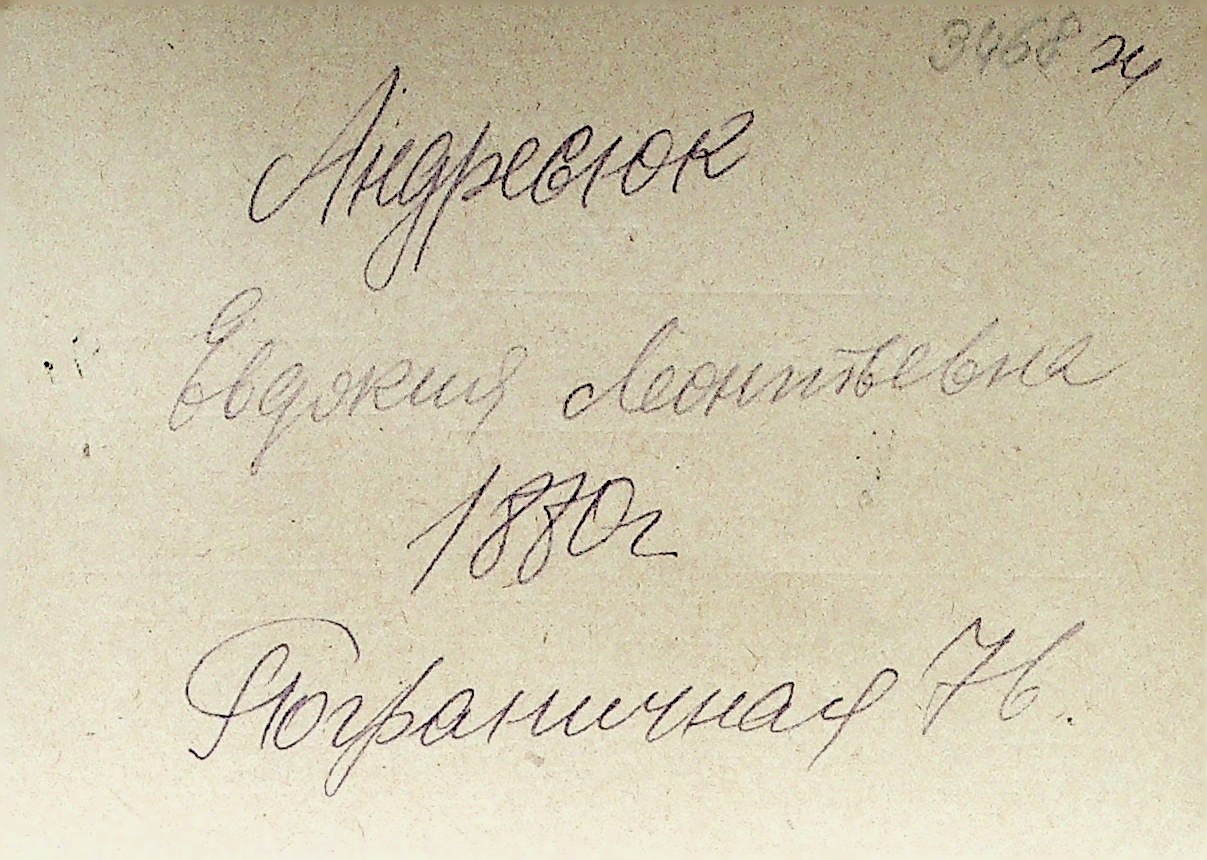 3468 ж
Андреюк
Евдокия Леонтьевна
1880г
Пограничная 76.